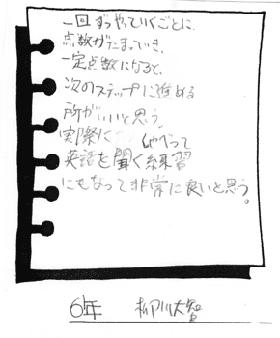 一回ずつやっていくごとに、
点数がたまっていき、
一定点数になると、
次のステップに進める
所がいいと思う。
実際に しゃべって
英語を聞く練習
にもなって非常に良いと思う。
6年 柳川大智